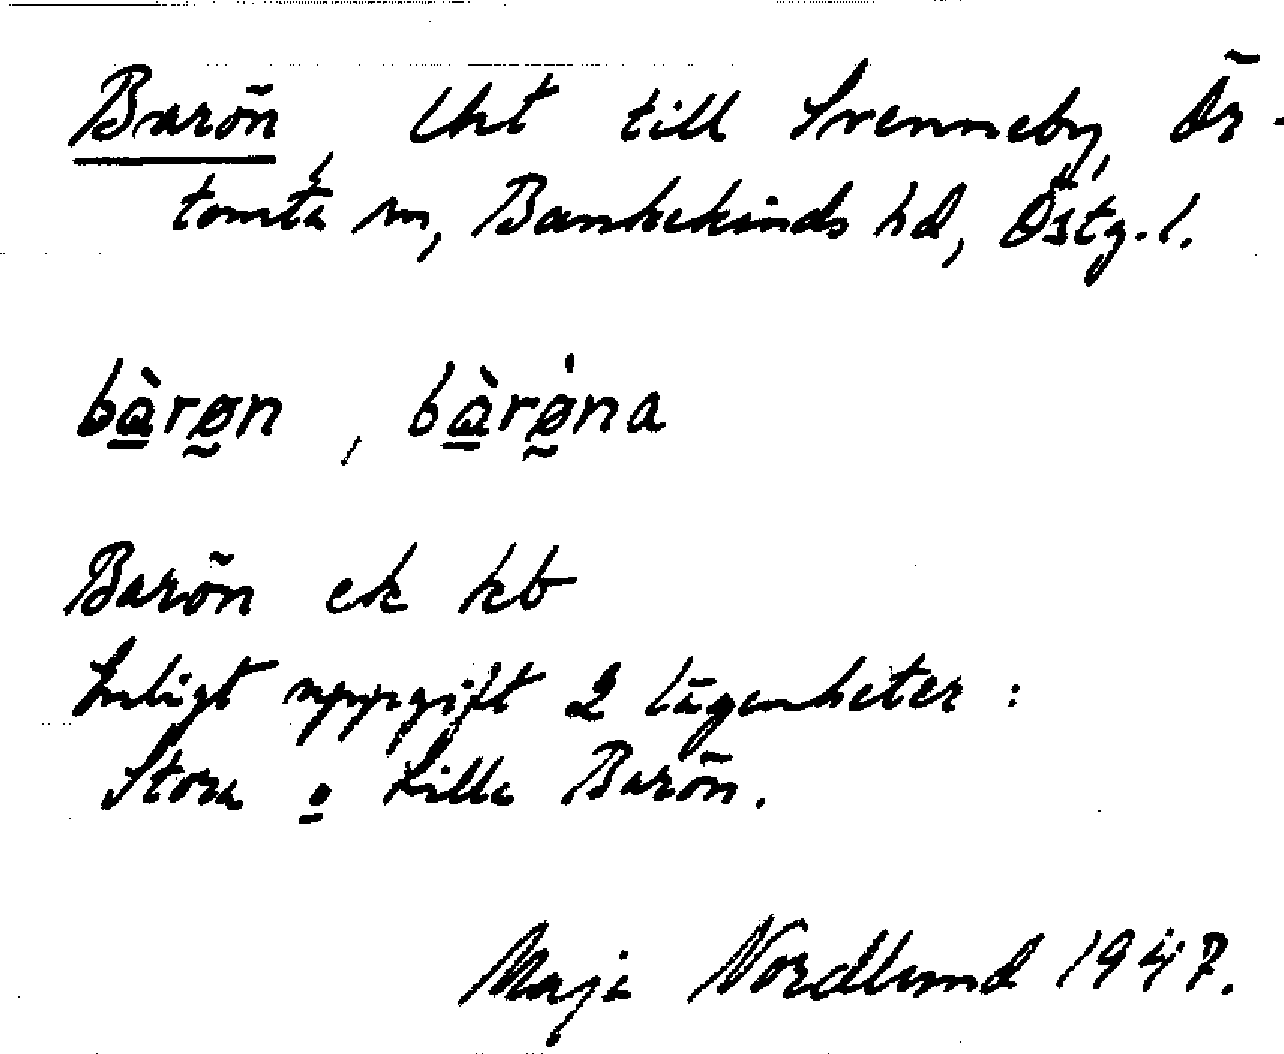 Barön, Uht till Svenneby, Ör-
tomta sn, Bankekinds hd, Östg. l.
bàrøn, bàrǿna
Barön ek kb
Enligt uppgift 2 lägenheter:
Stora o Lilla Barön.
Maja Nordlund 1947.